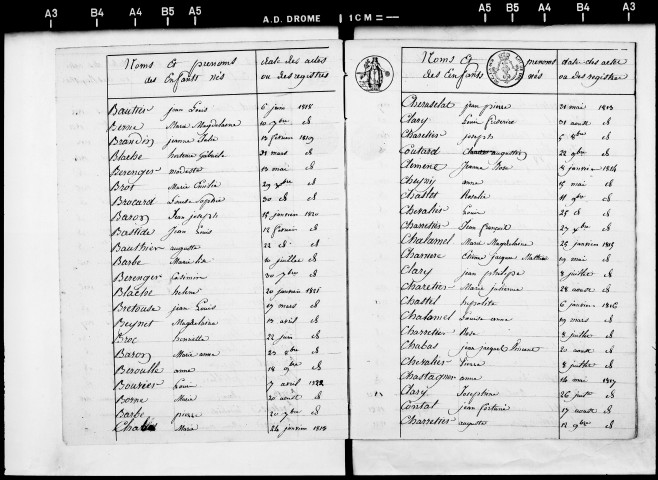 A3 B4 A4 B5 A5 A.D. DROME 1 CM A5 B5 A4 B4 A3
Noms Et prenoms
des Enfants nés
date des actes
ou des registres
Bautier jean Louis 6 juin 1818
Berne Marie Magdelaine 10 9bre d
Brandin jeanne Julie 13 février 1819
Blache 31 mars d
Berenger modeste 13 mai d
Brot Marie Emilie 29 d
Brocard Louise Sophie 30 d d
Baron Jean joseph 18 janvier 1820
Bastide Jean Louis 12 février d
Bauthier auguste 22 d d
Barbe Marie 10 juillet d
Berenger Casimire 30 9bre d
Blache helene 20 janvier 1821
Bretouse jean Louis 17 mars d
Beynet Magdelaine 13 avril d
Broc henriette 22 juin d
Baron Marie anne 23 8bre d
Beroulle anne 14 9bre d
Bouvier Louise 7 avril 1822
Borne Marie 20 août d
Barbe pierre 20 9bre d
Chabas Marie 24 janvier 1813
Noms Et prenoms
des Enfants nés
date des actes
ou des registres
Chevuslat jean pierre 31 mai 1813
Clary Louis frederic 31 aoust d
Charetier joseph 5 8bre d
Coutard augustin 22 9bre d
Clement Jeanne Rose 4 janvier 1814
anne 15 mai d
Chastel Rosalie 11 9bre d
Chevalier Louise 25 d d
Charretier Jean françois 27 d
Chalamel Marie Magdelaine 25 janvier 1815
Charriere Etienne jacques Mathieu 19 mai d
Clary jean philipe 8 juillet d
Charetier Marie julienne 28 aoust d
Chastel hypolite 6 janvier 1816
Chalamel Louise anne 19 mars d
Charretier Rose 3 juillet d
Chabas jean jacques Vincent 20 aoust d
Chevalier pierre 8 juillet d
Chastagner anne 14 mai 1817
Clary Josephine 26 juillet d
Contat jean fortuné 17 aoust d
Charretier auguste 12 9bre d
A3 B4 A4 B5 A5 A5 B5 A4 B4 A3